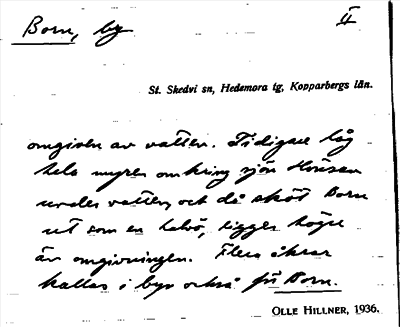 Born, by
II
St. Skedvi sn, Hedemora tg, Kopparbergs län.
omgiven av vatten. Tidigare låg
hela myren omkring sjön Hönsan
under vatten, och då sköt Born
ut som en halvö, ligger högre
än omgivningen. Flera åkrar
kallas i byn också på Born.
OLLE HILLNER, 1936.